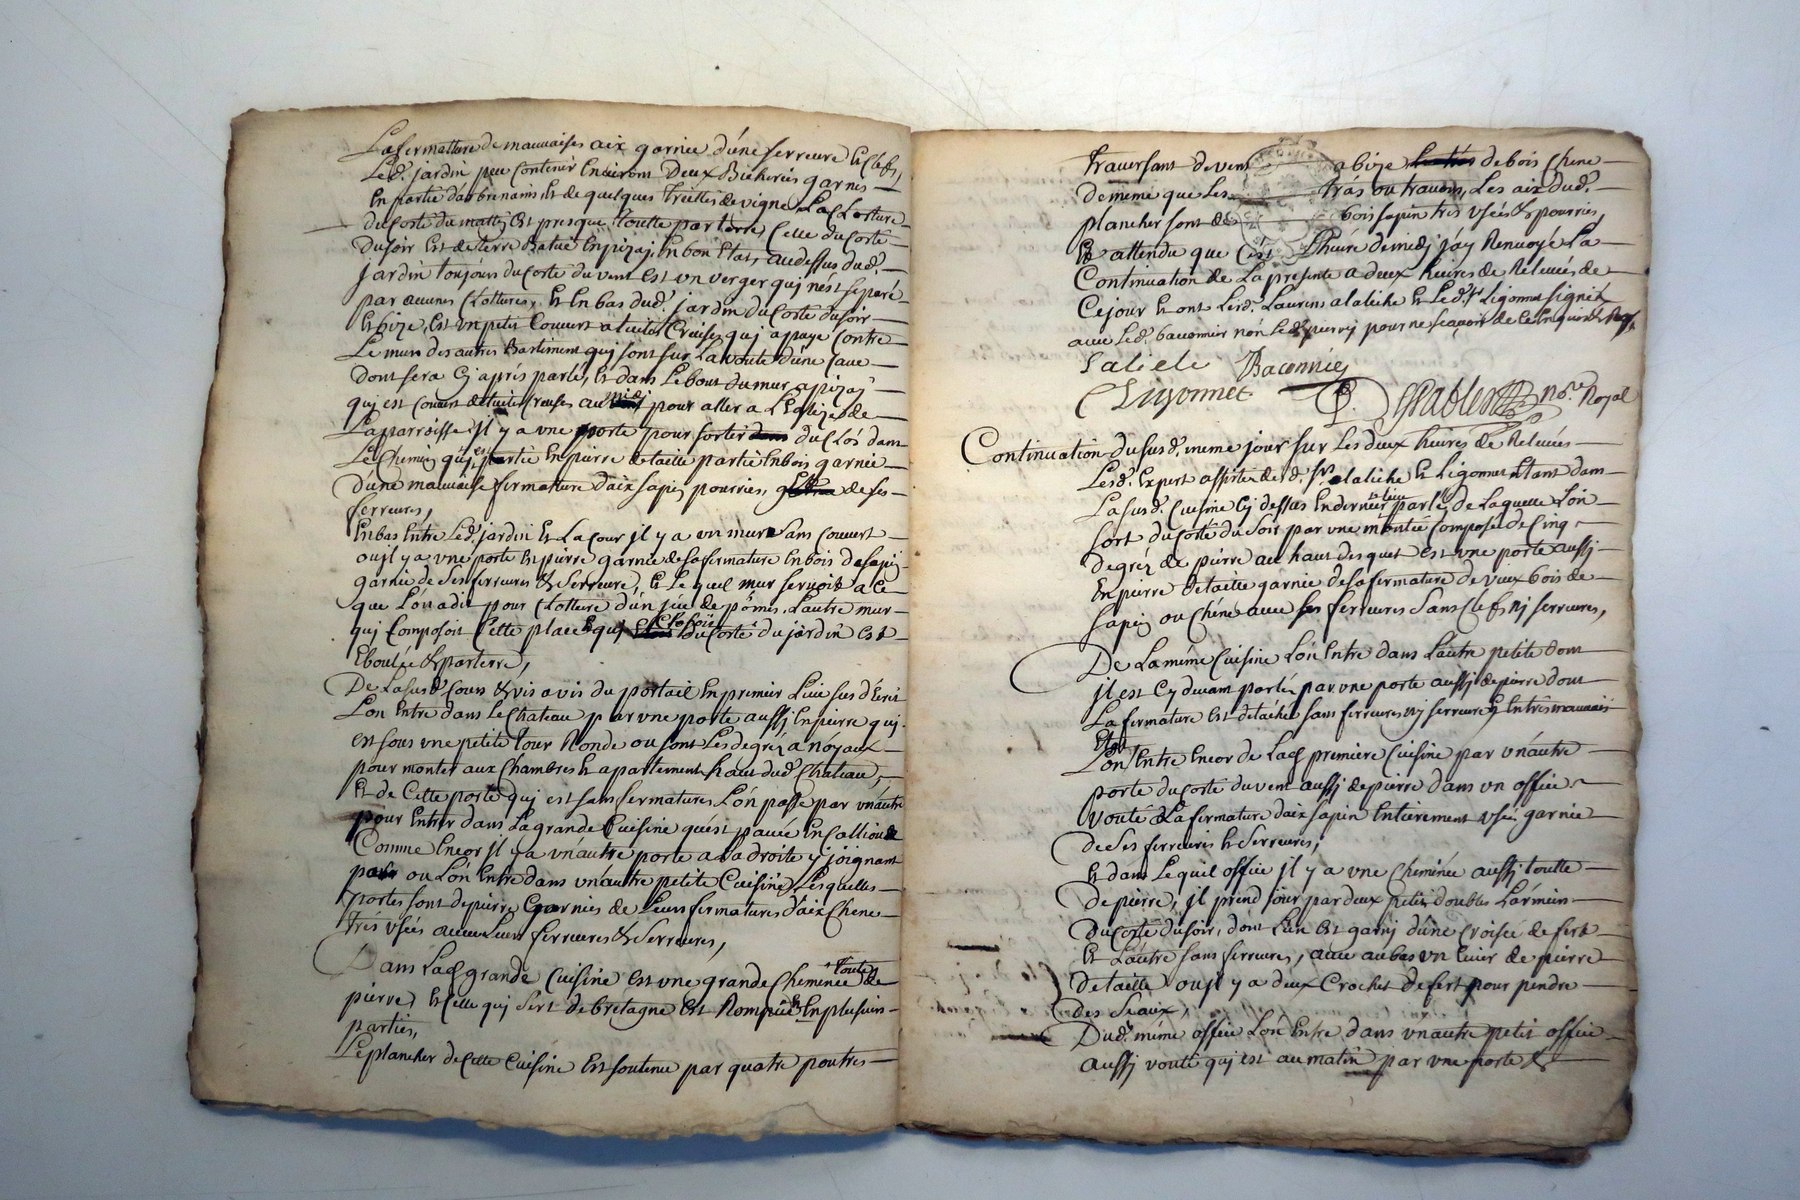 La fermatture de mauvaises aix garnie d'une serreure et clefs,
Led. jardin peu contenir environ Deux Bicherées garnis
En partie d'arbre nains et de quelques treilles de vigne, La Clotture
du Cotté du mattin est presque toutte par terre, Celle du Cotté
du soir est de terre Batue en pizay, En bon Etat, au dessus dud.
Jardin toujours du Cotté du vent est un verger qui n'est separé
par aucunes Clottures, Et En bas dud. jardin du Cotté du soir
et bize, est un petit Couvert a tuiles Creuses qui apuye Contre
Le mur des autres Bastiment qui sont sur La voute d'une Cave
dont sera Cy aprés parlé, Et dans Le bout du mur a pizay
qui est Couvert de tuiles Creuses au midy pour aller a L'Eglize de
La parroisse il y a une porte pour sortir du Clos dans
Le Chemin qui est partie En pierre de taille partie En bois garnie
d'une mauvaise fermature d'aix sapin pourries, de ses
ferreures,
En bas Entre Led. jardin Et La Cour il y a un mur sans Couvert
ou il y a une porte En pierre garnie de sa fermature En bois de sapin
garnie de ses ferreures & serreure, Et Le quel mur servoit a ce
que L'on a dit pour Clotture d'un jeu de pomes, L'autre mur
qui Composoit Cette place Et qui Etoit du Cotté du jardin est
Eboulée & par terre,
De La susd. Cour & vis a vis du portail En premier Lieu sus d'Ecrit
L'on Entre dans Le Chateau par une porte aussi En pierre qui
est sous une petite Tour Ronde ou sont Les degréz a Noyaux
pour monter aux Chambres et apartement haut dud. Chateau,
Et de Cette porte qui est sans fermatures L'on passe par un autre
pour Entrer dans La grande Cuisine qu'est pavée En Calliou
Comme Encor il y a un'autre porte a La droite y joignant
par ou L'on Entre dans un'autre petite Cuisine, Lesquelles
portes sont de pierre garnies de Leurs fermatures d'aix Chene
trés usées avec Leurs ferreures & serreures,
Dans Lad. grande Cuisine est une grande Cheminée toute de
pierre, et Celle qui sert de bretagne est Rompüe En plusieurs
parties,
Le plancher de Cette Cuisine Est soutenu par quatre poutres
traversant de vent a bize de bois Chene
de meme que Les trás ou travons, Les aix dud.
plancher sont de bois sapin tres usés & pourries,
Et attendu que C'est L'heure de midy j'ay Renvoyé La
Continuation de La presente a deux heures de Relevées de
Ce jour et ont Lesd. Laurens alatiche et Led. Sr. Ligonnet signés
avec Led. baconnier non Led. pour ne sçavoir de Ce Enquis & Req.
Baconnier
Ligonnet No.re Royal
Continuation du susd. meme jour sur Les deux heures de Relevées
Lesd. Expert assistez desd. Srs alatiche et Ligonnet Etant dans
La susd. Cuisine Cy dessus En dernier Lieu parlé, de Laquelle L'on
sort du Cotté du soir par une montée Composée de Cinq
degréz de pierre au haut desquels est une porte aussi
En pierre de taille garnie de sa fermature de vieux bois de
sapin ou Chéne avec ses ferreures sans Clefs ny serreures,
De La méme Cuisine L'on Entre dans L'autre petite dont
il est Cy devant parlé, par une porte aussi de pierre dont
La fermature est detachée sans ferreures ny serreures Et En très mauvais
Etat
L'on Entre Encor de Lad. premiere Cuisine par un'autre
porte du Cotté du vent aussi de pierre dans un office
vouté La fermature d'aix sapin Entierement usée, garnie
de ses ferreures & serreures,
Et dans Le quel office il y a une Cheminée aussi toutte
de pierre, il prend jour par deux petits doubles L'armiers
du Cotté du soir, dont L'un est garny d'une Croisée de fert
Et L'autre sans ferreures, avec au bas un Evier de pierre
de taille ou il y a deux Crochet de fert pour pendre
des Seaux,
Dud. méme office L'on Entre dans un autre petit office
aussi vouté qui est au matin par une porte de